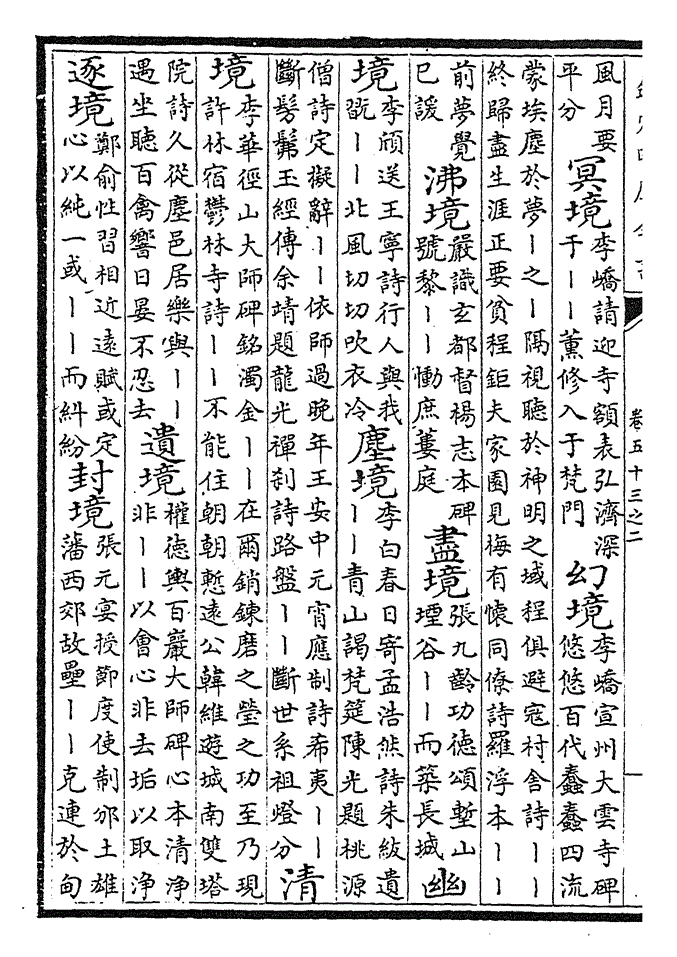 卷五十三之二
風月要
平分
冥境
李嶠請迎寺額表弘濟深
于丨丨薰修入于梵門
幻境
李嶠宣州大雲寺碑
悠悠百代蠢蠢四流
蒙埃塵於夢丨之丨隔視聽於神明之域程俱避寇村舍詩丨丨
終歸盡生涯正要貧程鉅夫家園見梅有懷同僚詩羅浮本丨丨
前夢覺
已諼
沸境
嚴識玄都督楊志本碑
號黎丨丨慟庶蔞庭
盡境
張九齡功德頌塹山
堙谷丨丨而築長城
幽
境
李頎送王寧詩行人與我
翫丨丨北風切切吹衣冷
塵境
李白春日寄孟浩然詩朱紱遺
丨丨青山謁梵筵陳光題桃源
僧詩定擬辭丨丨依師過晚年王安中元宵應制詩希夷丨丨
斷髣髴玉經傳余靖題龍光禪刹詩路盤丨丨斷世系祖燈分
清
境
李華徑山大師碑銘濁金丨丨在爾銷鍊磨之瑩之功至乃現
許林宿鬱林寺詩丨丨不能住朝朝慙遠公韓維遊城南雙塔
院詩久從塵邑居樂與丨丨
遇坐聽百禽響日晏不忍去
遺境
權德輿百巖大師碑心本清淨
非丨丨以會心非去垢以取浄
逐境
鄭俞性習相近遠賦或定
心以純一或丨丨而糾紛
封境
張元宴授節度使制邠土雄
藩西郊故壘丨丨克連於甸